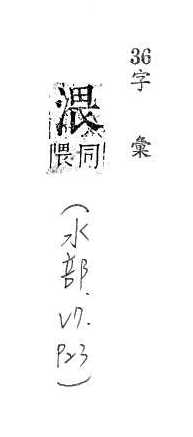 36字彙
渨
同隈
(水部. V7. P23)